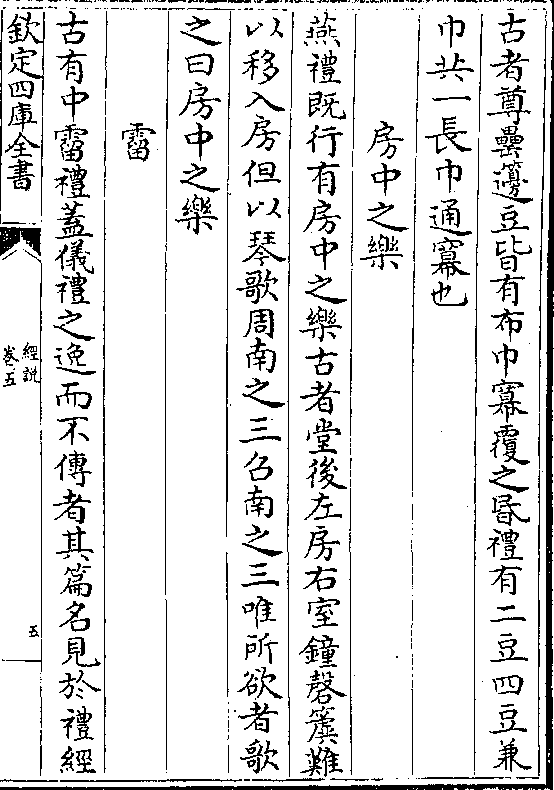 古者尊罍籩豆皆有布巾冪覆之昏禮有二豆四豆兼
巾共一長巾通冪也
房中之樂
燕禮既行有房中之樂古者堂後左房右室鐘磬簴難
以移入房但以琴歌周南之三召南之三唯所欲者歌
之曰房中之樂
霤
古有中霤禮蓋儀禮之逸而不傳者其篇名見於禮經
欽定四庫全書
經說
卷五
五